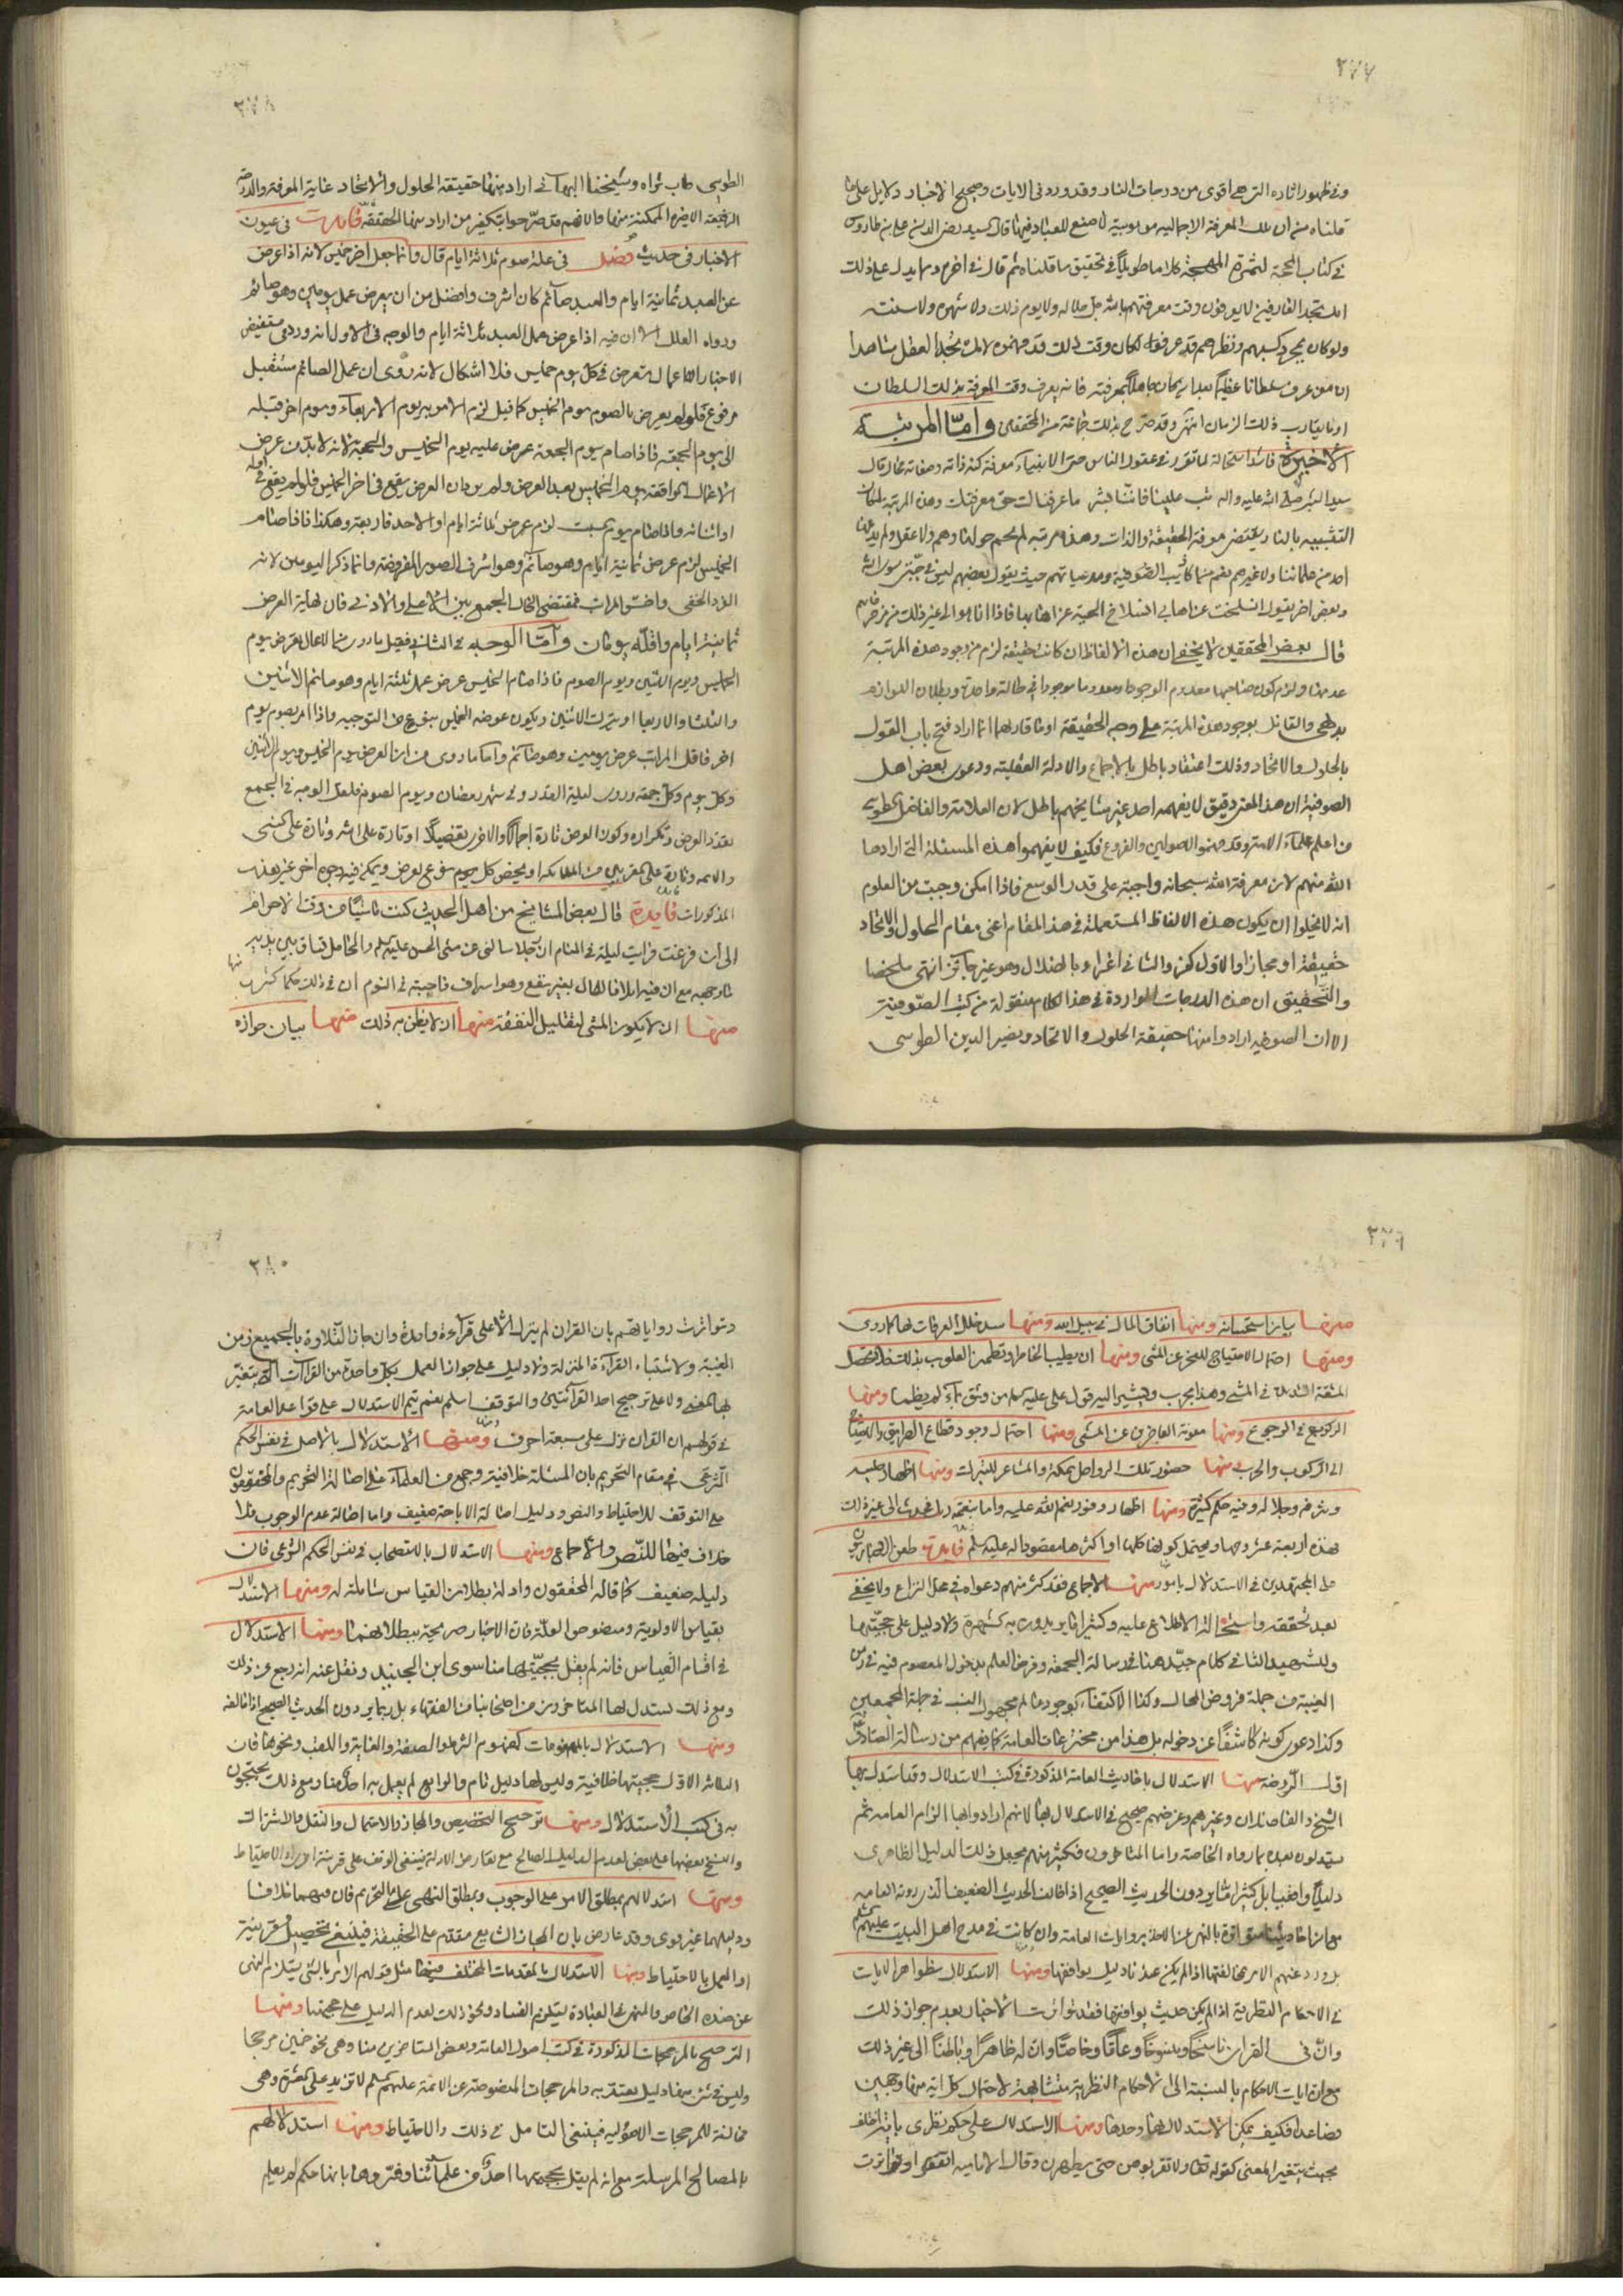 ٢٧٧
وفي ظهور اثاره التي هي اقوى من درجات النار وقد ورد في الايات وصحيح الاخبار دلايل على ما
قلناه من ان تلك المعرفة الاجمالية موهوبية لا صنع للعباد فيها قال السيد رضي الدين علي بن طاووس
في كتاب كشف المحجة لثمرة المهجة كلاما طويلا في تحقيق ما قلناه ثم قال في اخره ومما يدل على ذلك
انك تجد العارفين لا يعرفون وقت معرفتهم بالله جل جلاله ولا يوم ذلك ولا شهره ولا سنته
ولو كان بمجرد كسبهم ونظرهم قد عرفوه لكان وقت ذلك قد فهموه لانك تجد العقل شاهدا
ان من عرف سلطانا عظيما بعد ان كان جاهلا بمعرفته فانه يعرف وقت المعرفة بذلك السلطان
او ما يقارب ذلك الزمان انتهى وقد صرح بذلك جماعة من المحققين واما المرتبة
الاخيرة فاستحالة لما تقرر في عقول الناس حتى الانبياء معرفة كنه ذاته وصفاته محال قال
سيد البشر صلى الله عليه واله ما عرفناك حق معرفتك وهذه المرتبة
التشبيه بالنار يقتضي معرفة الحقيقة والذات وهذه مرتبة لم يحم حولها وهم ولا عقل ولم يدعها
احد من علمائنا ولا غيرهم نعم حيث يقول بعضهم ليس في جبتي سوى الله
وبعض اخر يقول انسلخت من اهابي انسلاخ الحية من اهابها فاذا انا هو الى غير ذلك
قال بعض المحققين لا يخفى ان هذه الالفاظ ان كانت حقيقة لزم من وجود هذه المرتبة
عدمها ولزم كون صاحبها معدوم الوجود ومعدوما موجودا في حالة واحدة وبطلان اللوازم
بديهي والقائل بوجود هذه المرتبة على وجه الحقيقة او ما قاربها انما اراد فتح باب القول
بالحلول والاتحاد وذلك اعتقاد باطل بالاجماع والادلة العقلية ودعوى بعض اهل
الصوفية ان هذا المعنى دقيق لا يفهمه احد غير مشايخهم باطل لان العلامة والفاضل الطوسي
من اعلم علماء الامة وقد فهموا الاصولين والفروع فكيف لا يفهموا هذه المسئلة التي ارادها
الله منهم لان معرفة الله سبحانه واجبة على قدر الوسع فاذا امكن وجبت من العلوم
انه لا يخلوا ان يكون هذه الالفاظ المستعملة في هذا المقام اعني مقام الحلول والاتحاد
حقيقة او مجازا والاول كفر والثاني اغراء بالضلال وهو غير جائز انتهى ملخصا
والتحقيق ان هذه الدرجات الواردة في هذا الكلام منقولة من كتب الصوفية
الا ان الصوفيه ارادوا منها حقيقة الحلول والاتحاد ونصير الدين الطوسي
٢٧٨
الطوسي طاب ثراه وشيخنا البهائي اراد منها حقيقة الحلول والاتحاد غاية المعرفة والدرجة
الرفيعة الاخيره الممكنة منها والا فهم قد صرحوا بتكفير من اراد منها الحقيقة فايدة في عيون
الاخبار في حديث فضل في علة صوم ثلاثة ايام قال وانما جعل اخر خميس لانه اذا عرض
عمل العبد ثمانية ايام والعبد صائم كان اشرف وافضل من ان يعرض عمل يومين وهو صائم
ورواه العلل الا ان فيه اذا عرض عمل العبد ثلاثة ايام والوجه في الاول انه ورد في مستفيض
الاخبار ان الاعمال تعرض في كل يوم خميس فلا اشكال لانه روى ان عمل الصائم مستقبل
مرفوع فلو لم يعرض بالصوم صوم الخميس كما قيل لزم الامر بيوم الاربعاء وصوم اخر قبله
الى يوم الجمعة فاذا صام يوم الجمعة عرض عليه يوم الخميس والجمعة لانه لابد من عرض
الاعمال الواقعة يوم الخميس بعد العرض ولم يرد ان العرض يقع في اخر الخميس فلو لم يقع في اوله
او اثنائه واذا صام يوم السبت لزم عرض ثلاثة ايام او الاحد فاربعة وهكذا فاذا صام
الخميس لزم عرض ثمانية ايام وهو صائم وهو اشرف الصور المفروضة وانما ذكر اليومين لانه
الفرد الخفي واخس المراتب فمقتضى الحال الجمع بين الاعلى والادنى فان نهاية العرض
ثمانية ايام واقله يومان واما الوجه في الثاني فيعلم مما ورد ان الاعمال تعرض يوم
الخميس ويوم الاثنين ويوم الصوم فاذا صام الخميس عرض عمل ثلثة ايام وهو صائم الاثنين
والثلثا والاربعا او يترك الاثنين ويكون عوضه الخميس بنوع من التوجيه واذا امر بصوم يوم
اخر فاقل المراتب عرض يومين وهو صائم واما ما روى من ان العرض يوم الخميس ويوم الاثنين
وكل يوم وكل جمعة وروى ليلة القدر وفي شهر رمضان ويوم الصوم فلعل الوجه في الجمع
تعدد العرض وتكراره وكون العرض تارة اجمالا والاخر تفصيلا او تارة على الله وتارة على النبي
والائمه وتارة على المقربين من الملائكه او يختص كل يوم بنوع عرض ويمكن فيه وجوه اخر غير هذه
المذكورات فايدة قال بعض المشايخ من اهل الحديث كنت ناسيا من وقت الاحرام
الى ان فرغت فرايت ليلة في المنام ان رجلا سالني عن مشي الحسن عليه السلم والمحامل تساق بين يديه
ما وجهه مع ان فيه اتلافا للمال بغير نفع وهو اسراف فاجبته في النوم ان في ذلك حكما كثيرة
منها ان لا يكون المشي لتقليل النفقة منها ان لا يظن به ذلك منها بيان جوازه
منها
٢٧٩
منها بيان استحبابه ومنها انفاق المال في سبيل الله ومنها سد خلل العرفات بها كما روى
ومنها احتمال الاحتياج للعجز عن المشي ومنها ان يطيب الخاطر وتطمئن القلوب بذلك فلا تحصل
المشقة الشديدة في المشي وهذا مجرب ويشير اليه قول علي عليه السلم من وثق بماء لم يظما ومنها
الركوب في الرجوع ومنها معونة العاجزين عن المشي ومنها احتمال وجود قطاع الطريق والاحتياج
الى الركوب والحرب منها حضور تلك الرواحل بمكة والمشاعر للتبرك ومنها اظهار حسبه
وشرفه وجلاله وفيه حكم كثيرة ومنها اظهار وفور نعم الله عليه واما بنعمة ربك فحدث الى غير ذلك
فهذه اربعة عشر وجها ويحتمل كونها كلها او اكثرها مقصودا له عليه السلم فايدة طعن الاخباريون
على المجتهدين في الاستدلال بامور منها الاجماع فقد كثر منهم دعواه في محل النزاع ولا يخفى
بعد تحققه واستحالة الاطلاع عليه وكثيرا ما يريدون به الشهرة ولا دليل على حجيتها
وللشهيد الثاني كلام جيد هنا في رسالة الجمعة وفرض العلم بدخول المعصوم فيه في زمن
الغيبة من جملة فروض المحال وكذا الاكتفاء بوجود عالم مجهول النسب في جملة المجمعين
وكذا دعوى كونه كاشفا عن دخوله بل هذا من مخترعات العامة كما يفهم من رسالة الصادق
اول الروضه منها الاستدلال باحاديث العامة المذكورة في كتب الاستدلال وقد استدل بها
الشيخ والفاضلان وغيرهم وغرضهم صحيح في الاستدلال بها لانهم ارادوا بها الزام العامه ثم
يستدلون بعده بما رواه الخاصة واما المتاخرون فكثير منهم يجعل ذلك الدليل الظاهري
دليلا واقعيا بل كثيرا ما يردون الحديث الصحيح اذا خالف الحديث الضعيف الذي روته العامه
مع ان احاديثنا متواترة بالنهي عن الاخذ بروايات العامة وان كانت في مدح اهل البيت عليهم السلم
بل ورد عنهم الامر بمخالفتها اذا لم يكن عندنا دليل يوافقها ومنها الاستدلال بظواهر الايات
في الاحكام النظرية اذا لم يكن حديث يوافقها فقد تواترت الاخبار بعدم جواز ذلك
وان في القران ناسخا ومنسوخا وعاما وخاصا وان له ظاهرا وباطنا الى غير ذلك
مع ان ايات الاحكام بالنسبة الى الاحكام النظرية متشابهة لاحتمال كل اية منها وجهين
فصاعدا فكيف يمكن الاستدلال بها وحدها ومنها الاستدلال على حكم نظري باية اختلف
بحيث يتغير المعنى كقوله تعالى ولا تقربوهن حتى يطهرن وقال الامامية اتفقوا وتواترت
٢٨٠
وتواترت رواياتهم بان القران لم ينزل الا على قراءة واحدة وان جاز التلاوة بالجميع زمن
الغيبة ولاشتباه القراءة المنزلة ولا دليل على جواز العمل بكل واحدة من القراءات التي يتغير
بها المعنى ولا على ترجيح احد القرائتين والتوقف اسلم نعم يتم الاستدلال على قواعد العامة
في قولهم ان القران نزل على سبعة احرف ومنها الاستدلال بالاصل في نفس الحكم
الشرعي في مقام التحريم بان المسئلة خلافية وجمع من العلماء على اصالة التحريم والمحققون
على التوقف للاحتياط والنص ودليل اصالة الاباحة ضعيف واما اصالة عدم الوجوب فلا
خلاف فيها للنص والاجماع ومنها الاستدلال بالاستصحاب في نفس الحكم الشرعي فان
دليله ضعيف كما قاله المحققون وادلة بطلان القياس شاملة له ومنها الاستدلال
بقياس الاولوية ومنصوص العلة فان الاخبار صريحة ببطلانهما ومنها الاستدلال
في اقسام القياس فانه لم يقل بحجيتها منا سوى ابن الجنيد ونقل عنه انه رجع عن ذلك
ومع ذلك يستدل بها المتاخرون من اصحابنا من الفقهاء بل ربما يردون الحديث الصحيح اذا خالفه
ومنها الاستدلال بالمفهومات كمفهوم الشرط والصفة والغاية واللقب ونحوها فان
الثلاثة الاول حجيتها خلافية وليس لها دليل تام والرابع لم يعمل به احد منا ومع ذلك يحتجون
به في كتب الاستدلال ومنها ترجيح التخصيص والمجاز والاحتمال والنقل والاشتراك
والنسخ بعضها على بعض لعدم الدليل الصالح مع تعارض الادلة فينبغي الوقف على قرينة اخرى او الاحتياط
ومنها استدلالهم بمطلق الامر على الوجوب وبمطلق النهي على التحريم فان فيهما خلافا
ودليلهما غير قوى وقد عارض بان المجاز الشايع مقدم على الحقيقة فينبغي تحصيل قرينة
او العمل بالاحتياط ومنها الاستدلال بالمقدمات المختلف فيها مثل قولهم الامر بالشئ يستلزم النهي
عن ضده الخاص والنهي في العبادة يستلزم الفساد ونحو ذلك لعدم الدليل على حجيتها ومنها
الترجيح بالمرجحات المذكورة في كتب اصول العامة وبعض المتاخرين منا وهي نحو خمسين مرجحا
وليس في شئ منها دليل يعتد به والمرجحات المنصوصة عن الائمة عليهم السلم لا تزيد على عشرة وهي
مخالفة للمرجحات الاصولية فينبغي التامل في ذلك والاحتياط ومنها استدلالهم
بالمصالح المرسلة مع انه لم يقل بحجيتها احد من علمائنا وفسروها بانها حكم لم يعلم